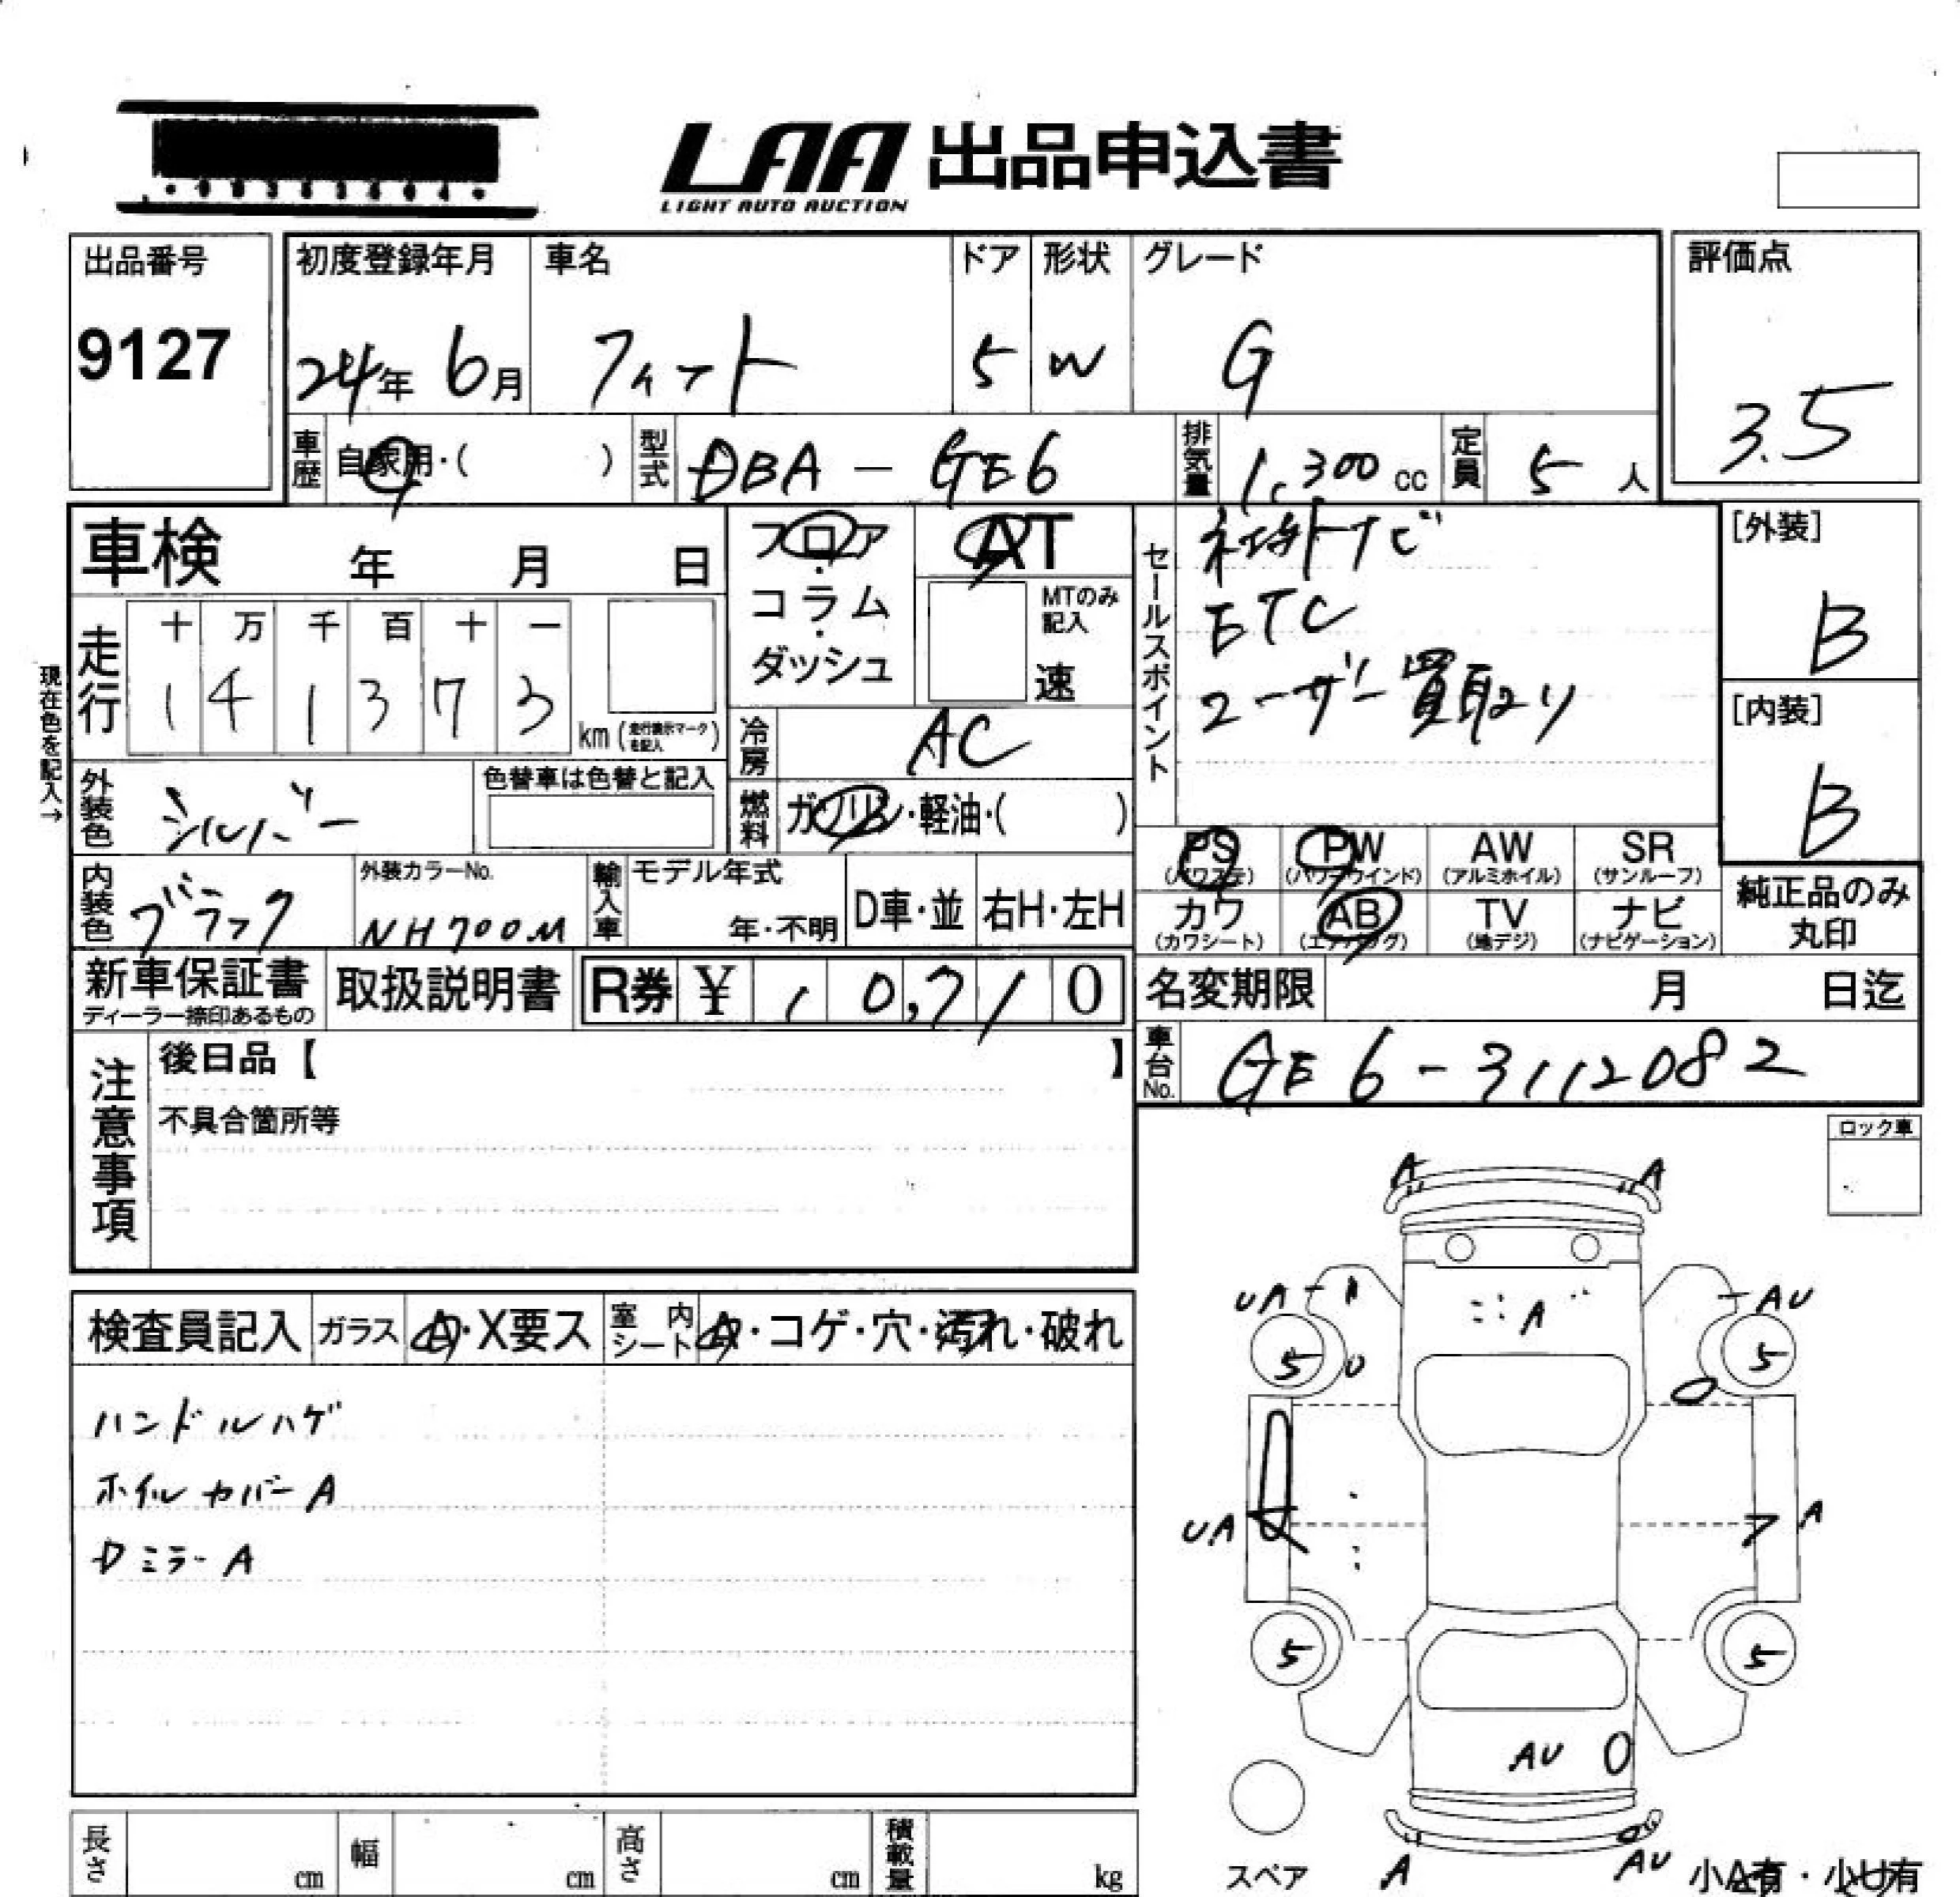 LAA 出品申込書
LIGHT AUTO AUCTION
出品番号
9127
初度登録年月
24年 6月
車名
フィット
ドア
5
形状
W
グレード
G
評価点
3.5
車歴 自家用・( )
型式 DBA - GE6
排気量 1,300 cc
定員 5 人
車検 年 月 日
フロア・コラム・ダッシュ
AT
MTのみ記入
速
セールスポイント
社外ナビ
ETC
ユーザー買取り
[外装]
B
[内装]
B
現在色を記入→
走行
十 万 千 百 十 一
1 4 1 3 7 3
km (走行表示マークを記入)
冷房 AC
外装色 シルバー
色替車は色替と記入
燃料 ガソリン・軽油・( )
PS (パワステ)
PW (パワーウインド)
AW (アルミホイル)
SR (サンルーフ)
内装色 ブラック
外装カラーNo.
NH700M
輸入車
モデル年式
年・不明
D車・並
右H・左H
カワ (カワシート)
AB (エアバッグ)
TV (地デジ)
ナビ (ナビゲーション)
純正品のみ丸印
新車保証書
ディーラー捺印あるもの
取扱説明書
R券 ¥ 10,710
名変期限 月 日迄
車台No. GE6-3112082
注意事項
後日品【 】
不具合箇所等
ロック車
A A
UA AU
A
5 5
UA A
5 5
AU
A AU
検査員記入
ガラス A・X要ス
室内シート A・コゲ・穴・汚れ・破れ
ハンドルハゲ
ホイルカバーA
Dミラー A
長さ cm
幅 cm
高さ cm
積載量 kg
スペア
小A有・小U有